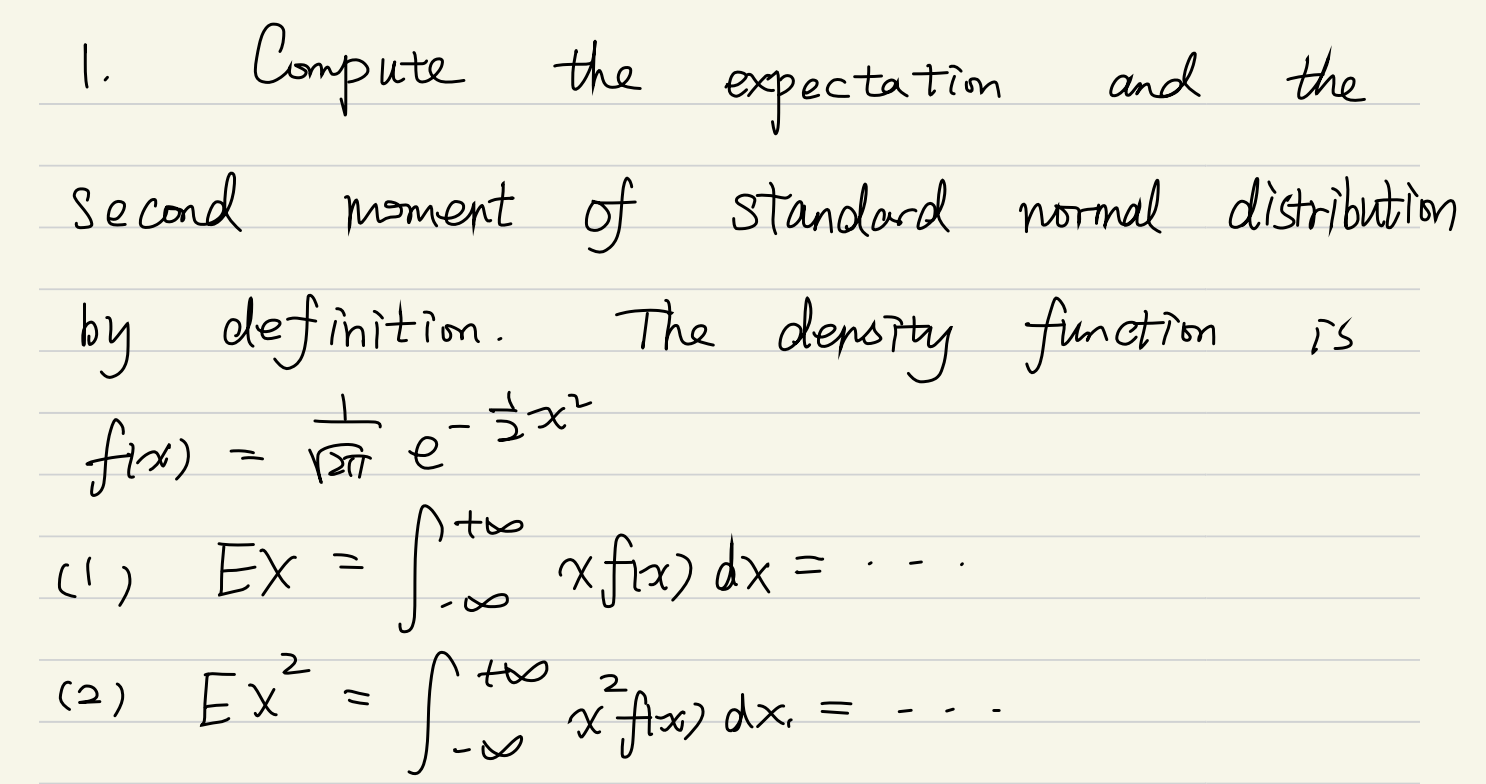 1. Compute the expectation and the
second moment of standard normal distribution
by definition. The density function is
f(x) = \frac{1}{\sqrt{2\pi}} e^{-\frac{1}{2}x^2}
(1) EX = \int_{-\infty}^{+\infty} x f(x) dx = ...
(2) EX^2 = \int_{-\infty}^{+\infty} x^2 f(x) dx. = ...